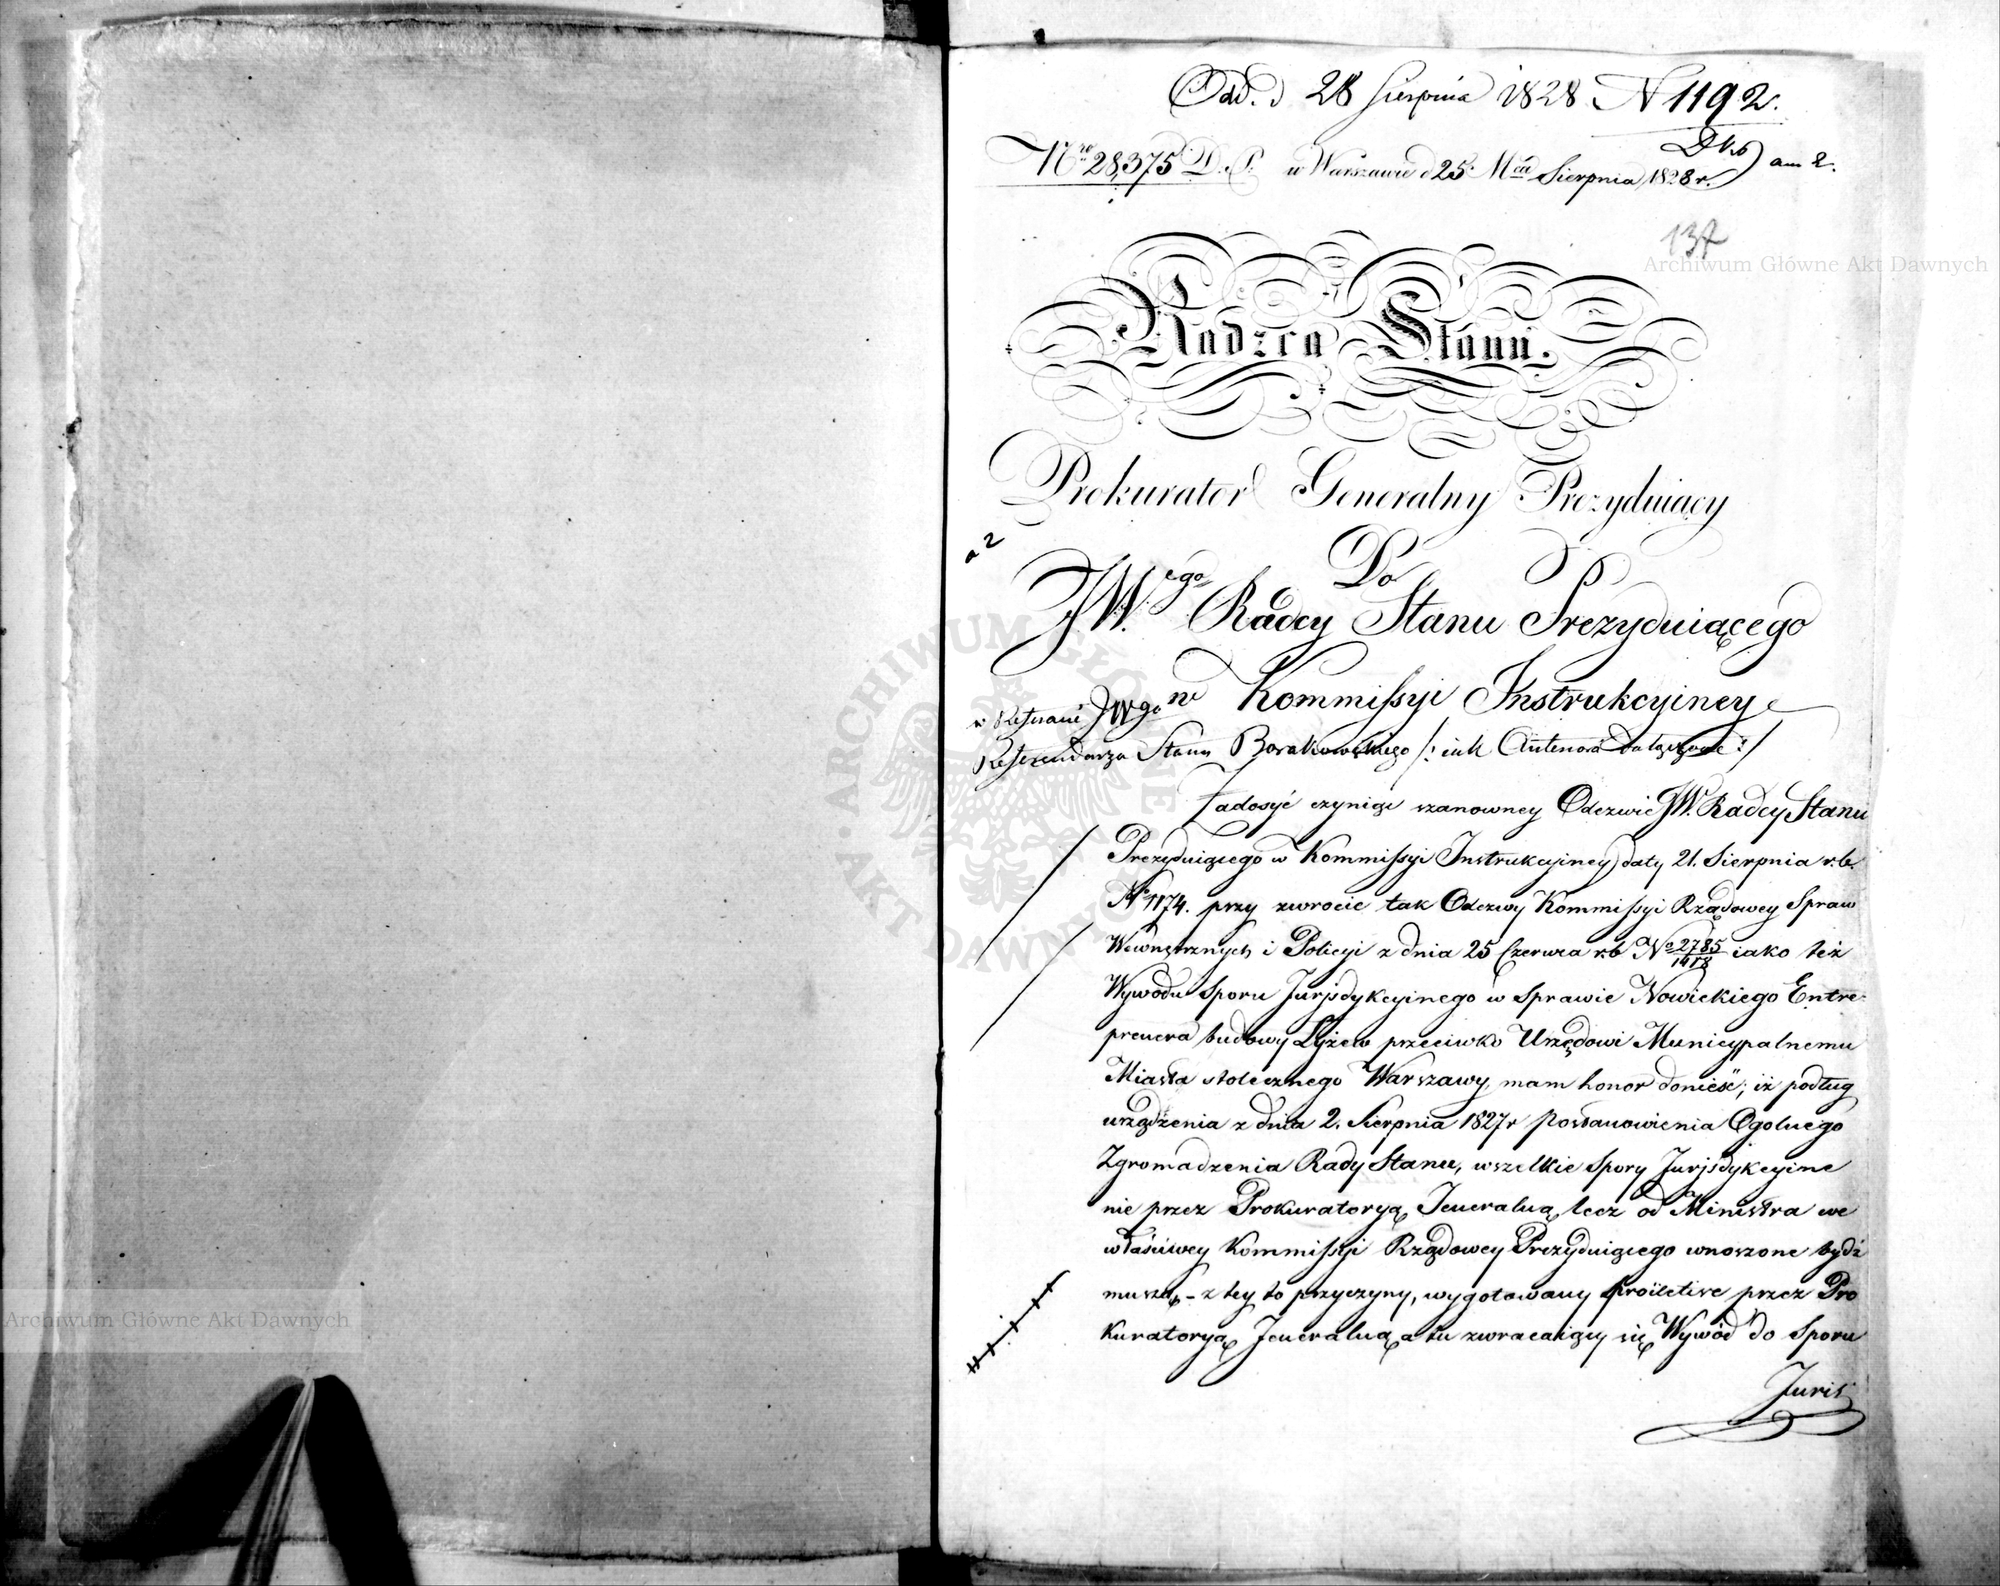 Odd. d 28 Sierpnia 1828 N 1192.
Nro 28,375 D. P. w Warszawie d 25 Mca Sierpnia 1828 r. am 2.
137
Archiwum Główne Akt Dawnych
Radzca Stanu.
Prokurator Generalny Prezyduiący
a 2
Do
JWego Radcy Stanu Prezyduiącego
w Kommissyi Instrukcyiney
w JWgo
Referendarza Stanu
Zadosyć czyniąc szanowney Odezwie JW. Radcy Stanu
Prezyduiącego w Kommissyi Instrukcyiney daty 21. Sierpnia r.b.
No 1174. przy zwrocie tak Odezwy Kommissyi Rządowey Spraw
Wewnętrznych i Policyi z dnia 25 Czerwca r.b No 2785/1418 iako też
Wywodu Sporu Jurysdykcyinego w Sprawie Nowickiego Entre-
prenera budowy Łyżew przeciwko Urzędowi Municypalnemu
Miasta stołecznego Warszawy, mam honor donieść; iż podług
urządzenia z dnia 2. Sierpnia 1827 r Postanowienia Ogolnego
Zgromadzenia Rady Stanu, wszelkie Spory Jurysdykcyine
nie przez Prokuratoryą Jeneralną lecz od Ministra we
właściwey Kommissyi Rządowey Prezyduiącego wnoszone bydź
muszą, – z tey to przyczyny, wygotowany przez Pro
kuratoryą Jeneralną a tu zwracaiący się Wywód do Sporu
Juris
Archiwum Główne Akt Dawnych
ARCHIWUM GŁÓWNE AKT DAWNYCH